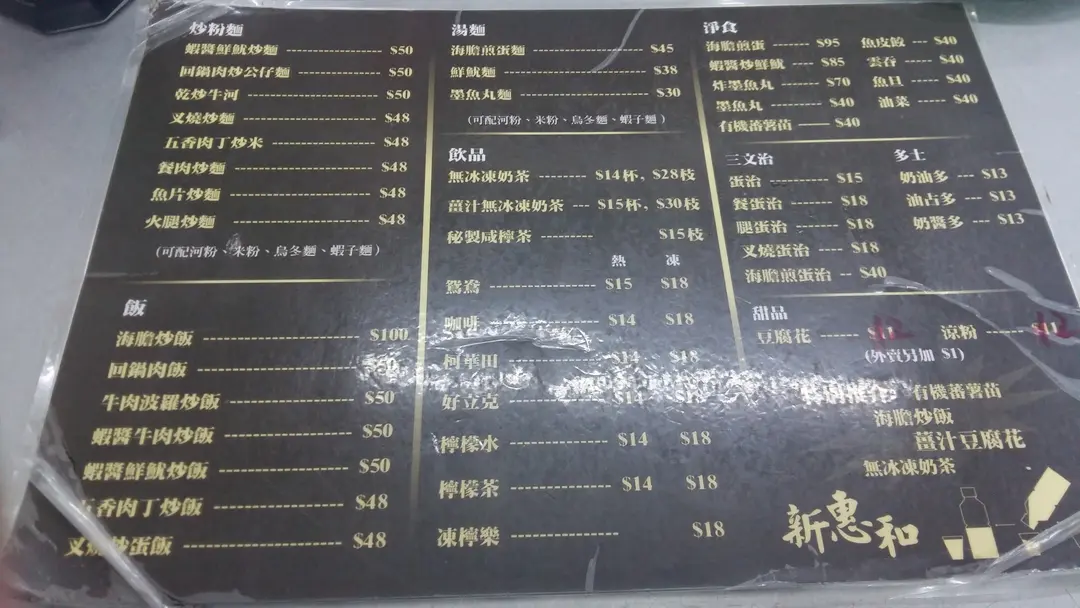 炒粉麵
蝦醬鮮魷炒麵 $50
回鍋肉炒公仔麵 $50
乾炒牛河 $50
叉燒炒麵 $48
五香肉丁炒米 $48
餐肉炒麵 $48
魚片炒麵 $48
火腿炒麵 $48
(可配河粉、米粉、烏冬麵、蝦子麵)
飯
海膽炒飯 $100
回鍋肉飯
牛肉波羅炒飯 $50
蝦醬牛肉炒飯 $50
蝦醬鮮魷炒飯 $50
五香肉丁炒飯 $48
叉燒炒蛋飯 $48
湯麵
海膽煎蛋麵 $45
鮮魷麵 $38
墨魚丸麵 $30
(可配河粉、米粉、烏冬麵、蝦子麵)
飲品
無冰凍奶茶 $14杯, $28枝
薑汁無冰凍奶茶 $15杯, $30枝
秘製咸檸茶 $15枝
熱 凍
鴛鴦 $15 $18
咖啡 $14 $18
柯華田 $14 $18
好立克 $14
檸檬水 $14 $18
檸檬茶 $14 $18
凍檸樂 $18
淨食
海膽煎蛋 $95 魚皮餃 $40
蝦醬炒鮮魷 $85 雲吞 $40
炸墨魚丸 $70 魚旦 $40
墨魚丸 $40 油菜 $40
有機蕃薯苗 $40
三文治
蛋治 $15
餐蛋治 $18
腿蛋治 $18
叉燒蛋治 $18
海膽煎蛋治 $40
多士
奶油多 $13
油占多 $13
奶醬多 $13
甜品
豆腐花 12 涼粉 12
(外賣另加 $1)
特別推介 有機蕃薯苗
海膽炒飯
薑汁豆腐花
無冰凍奶茶
新惠和